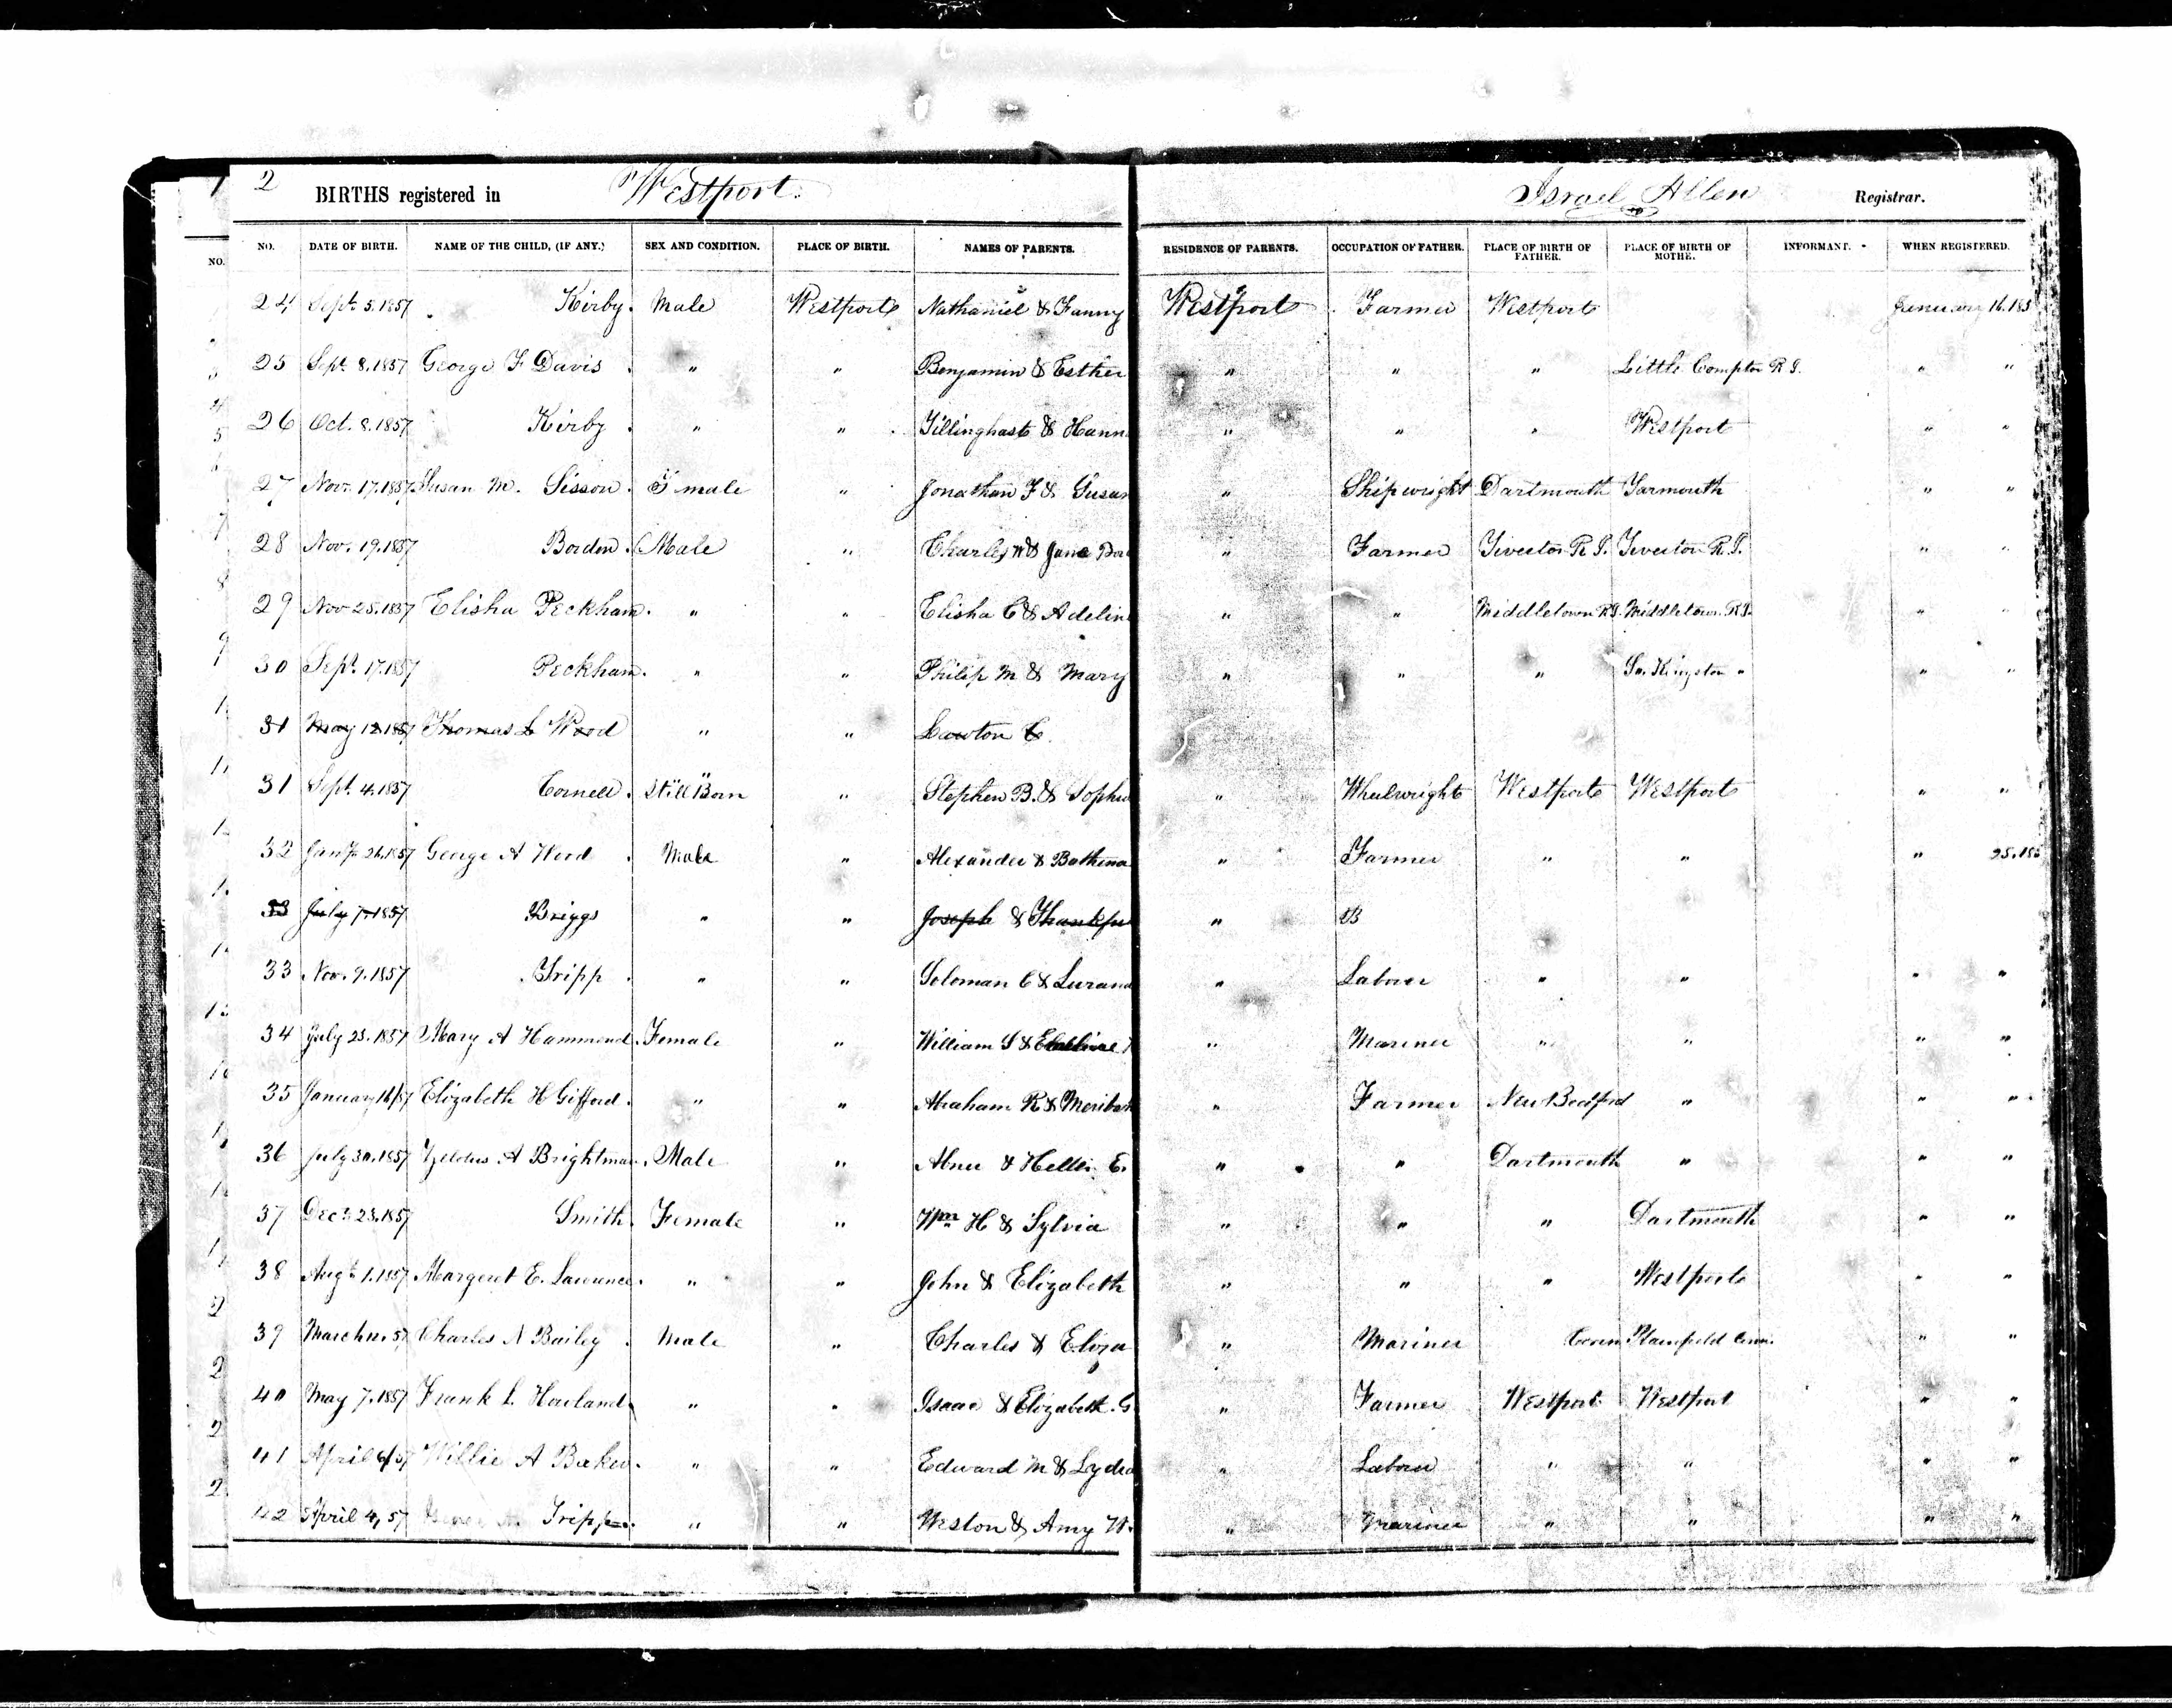 2 BIRTHS registered in Westport. Israel Allen Registrar.
NO. DATE OF BIRTH. NAME OF THE CHILD, (IF ANY.) SEX AND CONDITION. PLACE OF BIRTH. NAMES OF PARENTS. RESIDENCE OF PARENTS. OCCUPATION OF FATHER. PLACE OF BIRTH OF FATHER. PLACE OF BIRTH OF MOTHE. INFORMANT. WHEN REGISTERED.
NO.
24 Sept. 5. 1857 Kirby. Male Westport Nathaniel & Fanny Westport Farmer Westport January 16. 185
25 Sept. 8. 1857 George F Davis " " Benjamin & Esther " " " Little Compton R I. " "
26 Oct. 8. 1857 Kirby " " Tillinghast & Hann " " " Westport " "
27 Nov. 17. 1857 Susan M. Sisson. Female " Jonathan F & Susan " Shipwright Dartmouth Yarmouth " "
28 Nov. 19. 1857 Borden. Male " Charles & Jane Bor " Farmer Tiverton R I. Tiverton R.I. " "
29 Nov 25. 1857 Elisha Peckham. " " Elisha C & Adelin " " Middletown R I. Middletown R I. " "
30 Sept. 17. 1857 Peckham. " " Philip M & Mary " " " So. Kingston " " "
31 May 12 1857 Thomas L Wood " " Lawton C.
31 Sept. 4. 1857 Cornell. Still Born " Stephen B. & Sophu " Wheelwright Westport Westport " "
32 26. 1857 George A Wood Male " Alexander & Bathena " Farmer " " " 25. 185
33 July 7. 1857 Briggs " " Joseph & Thankfu " B
33 Nov. 9. 1857 Tripp " " Soloman C & Lurana " Laborer " " " "
34 July 23. 1857 Mary A Hammond. Female " William S & " Mariner " " " "
35 January 16/57 Elizabeth H Gifford. " " Abraham R & Meribah " Farmer New Bedford " " "
36 July 30. 1857 A Brightman. Male " Abner & Hellen E. " " Dartmouth " " "
37 Dec. 23. 1857 Smith. Female " Wm H & Sylvia " " " Dartmouth " "
38 Augt. 1. 1857 Margeret E. Lawrence. " " John & Elizabeth " " " Westport " "
39 March 57 Charles N Bailey Male " Charles & Eliza " Mariner Conn Plainfield Conn. " "
40 May 7. 1857 Frank L. Howland " " Isaac & Elizabeth. G " Farmer Westport Westport " "
41 April 6/57 Willie A Baker. " " Edward M & Lydia " Laborer " " " "
42 April 4, 57 Tripp. " " Weston & Amy W. " Mariner " " " "